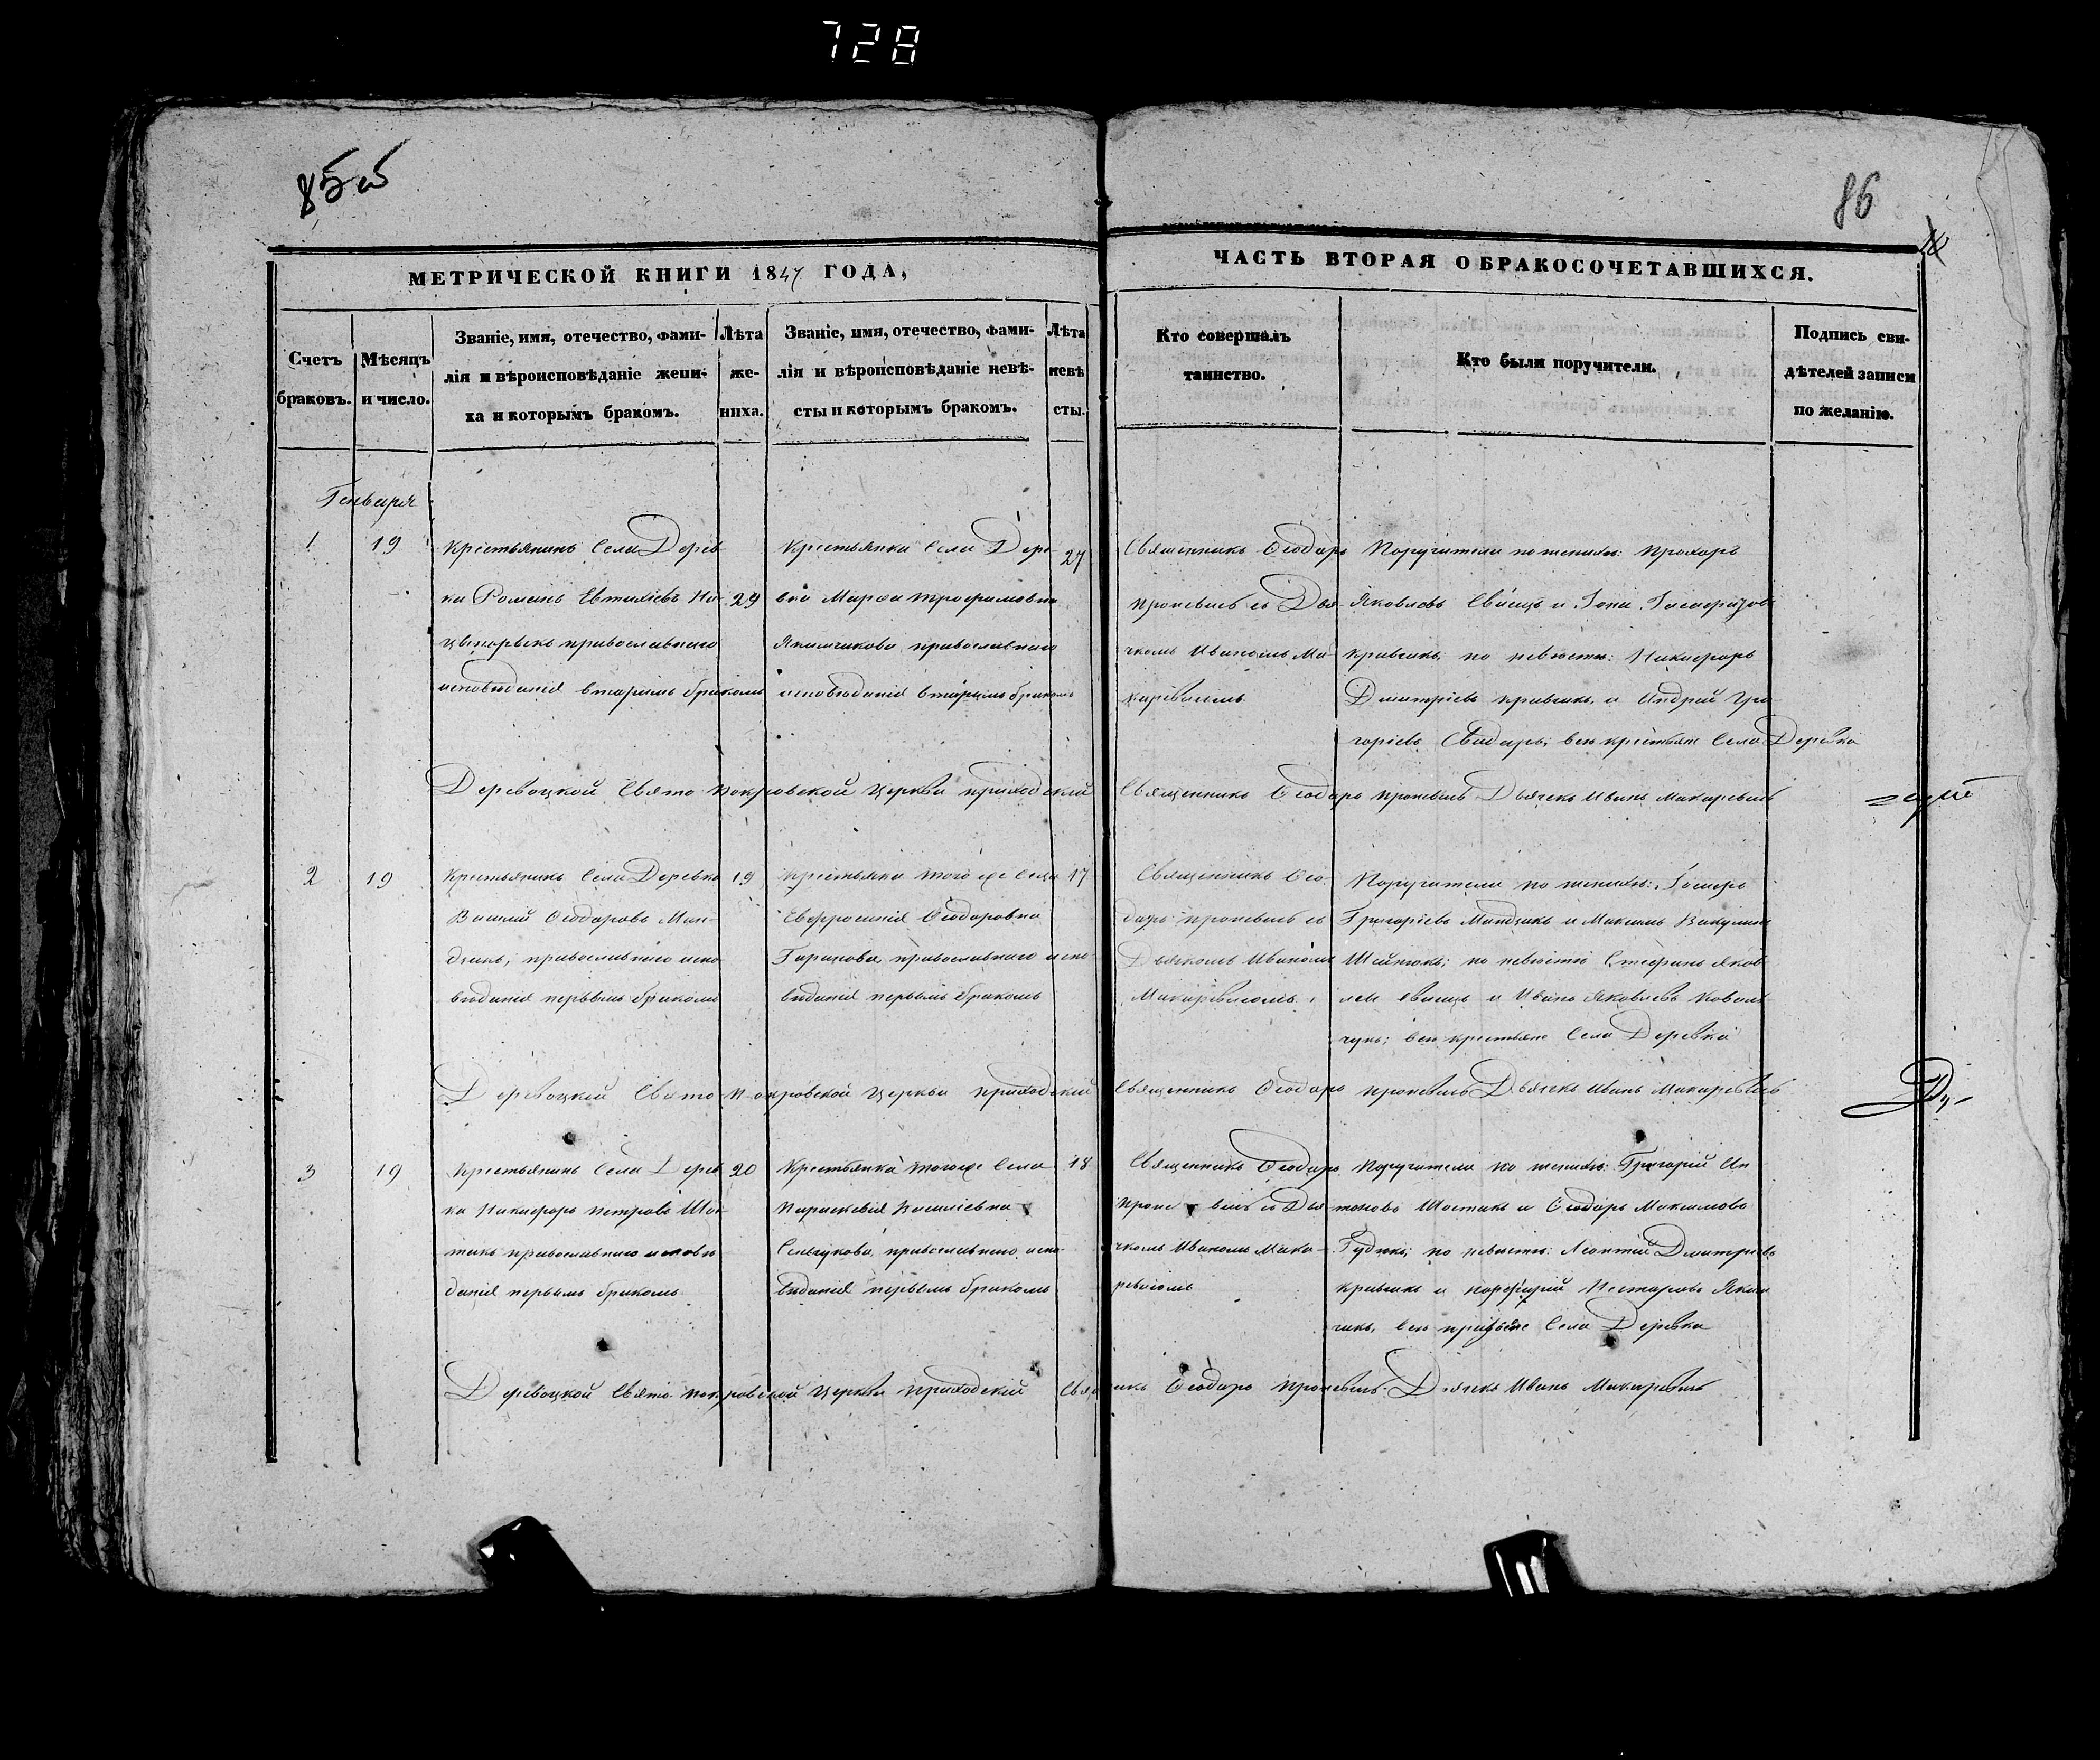 728
85об
86
МЕТРИЧЕСКОЙ КНИГИ 1847 ГОДА,
Счетъ браковъ.
Мѣсяцъ и число.
Званіе, имя, отечество, фами-
лія и вѣроисповѣданіе жени-
ха и которымъ бракомъ.
Лѣта
же-
ниха.
Званіе, имя, отечество, фами-
лія и вѣроисповѣданіе невѣ-
сты и которымъ бракомъ.
Лѣта
невѣ
сты.
ЧАСТЬ ВТОРАЯ О БРАКОСОЧЕТАВШИХСЯ.
Кто совершалъ
таинство.
Кто были поручители.
Подпись сви-
дѣтелей записи
по желанію.
Генваря
1
19
Крестьянинъ Села Дерев
ка Романъ Евтихіевъ
православнаго
исповѣданія вторымъ бракомъ
29
Крестьянка Села Дере
вка Марѳа Трофимовна
Якимчикова православнаго
исповѣданія вторымъ бракомъ
27
Священникъ Ѳеодоръ
съ Дья
чкомъ Иваномъ Ма
каревичемъ
Поручители по женихѣ: Прохоръ
Яковлевъ
Кравчикъ, по невѣстѣ: Никифоръ
Дмитріевъ Кравчикъ, и Андрей Гри
горіевъ всѣ крестьяне Села Деревка
Деревоцкой Свято Покровской Церкви приходскій
Священникъ Ѳеодоръ Дьячекъ Иванъ Макаревичъ
2
19
Крестьянинъ Села Деревка
Василій Ѳеодоровъ Ман-
дзикъ, православнаго испо
вѣданія первымъ бракомъ
19
Крестьянка того же Села
Евфросинія Ѳеодоровна
православнаго испо
вѣданія первымъ бракомъ
17
Священникъ Ѳео
доръ съ
Дьячкомъ Иваномъ
Макаревичомъ
Поручители по женихѣ:
Григоріевъ Мандзикъ и Максимъ
по невѣстѣ Стефанъ Яков
левъ и Иванъ Яковлевъ Коваль
чукъ; всѣ крестьяне Села Деревка
Деревоцкой Свято Покровской Церкви приходскій
Священникъ Ѳеодоръ Дьячекъ Иванъ Макаревичъ
3
19
Крестьянинъ Села Дерев
ка Никифоръ Петровъ Шос
такъ православнаго исповѣ
данія первымъ бракомъ
20
Крестьянка того же Села
Параскевія Василіевна
Сенчукова, православнаго испо
вѣданія первымъ бракомъ
18
Священникъ Ѳеодоръ
съ Дья
чкомъ Иваномъ Мака
ревичомъ
Поручители по женихѣ: Григорій Ан
тоновъ Шостакъ и Ѳеодоръ Максимовъ
Гудзюкъ; по невѣстѣ: Леонтій Дмитріевъ
Кравчикъ и Порфирій Несторовъ Яким
чикъ, всѣ Села Деревка
Деревоцкой Свято Покровской Церкви приходскій
Ѳеодоръ Дьячекъ Иванъ Макаревичъ